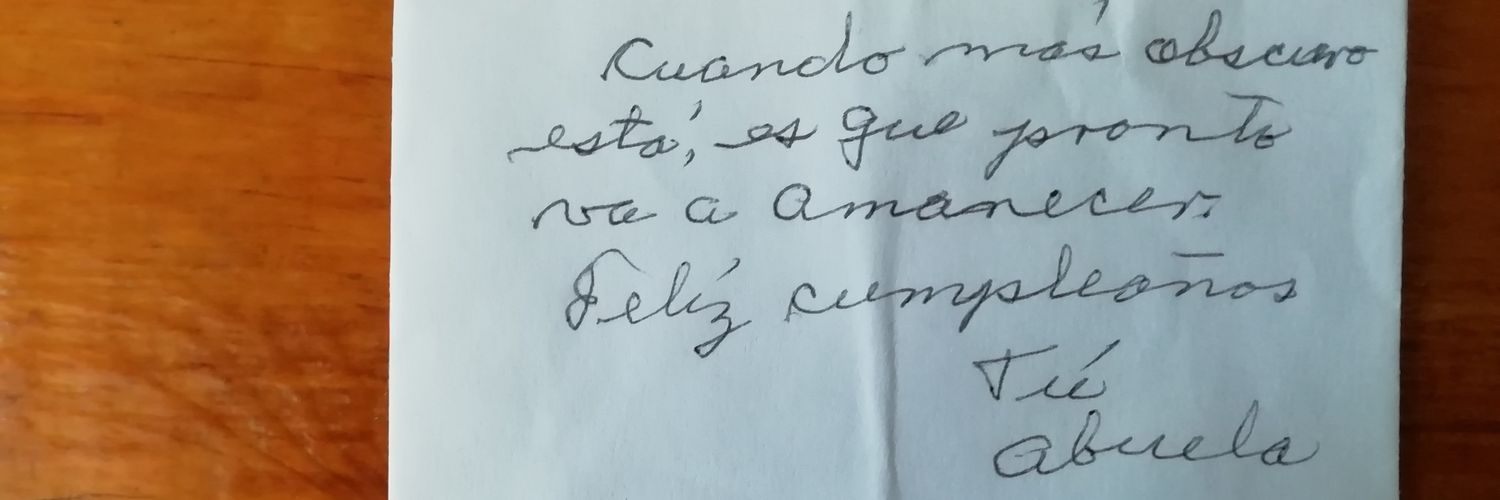 Cuando más obscuro
está, es que pronto
va a amanecer.
Felíz cumpleaños
Tú
abuela